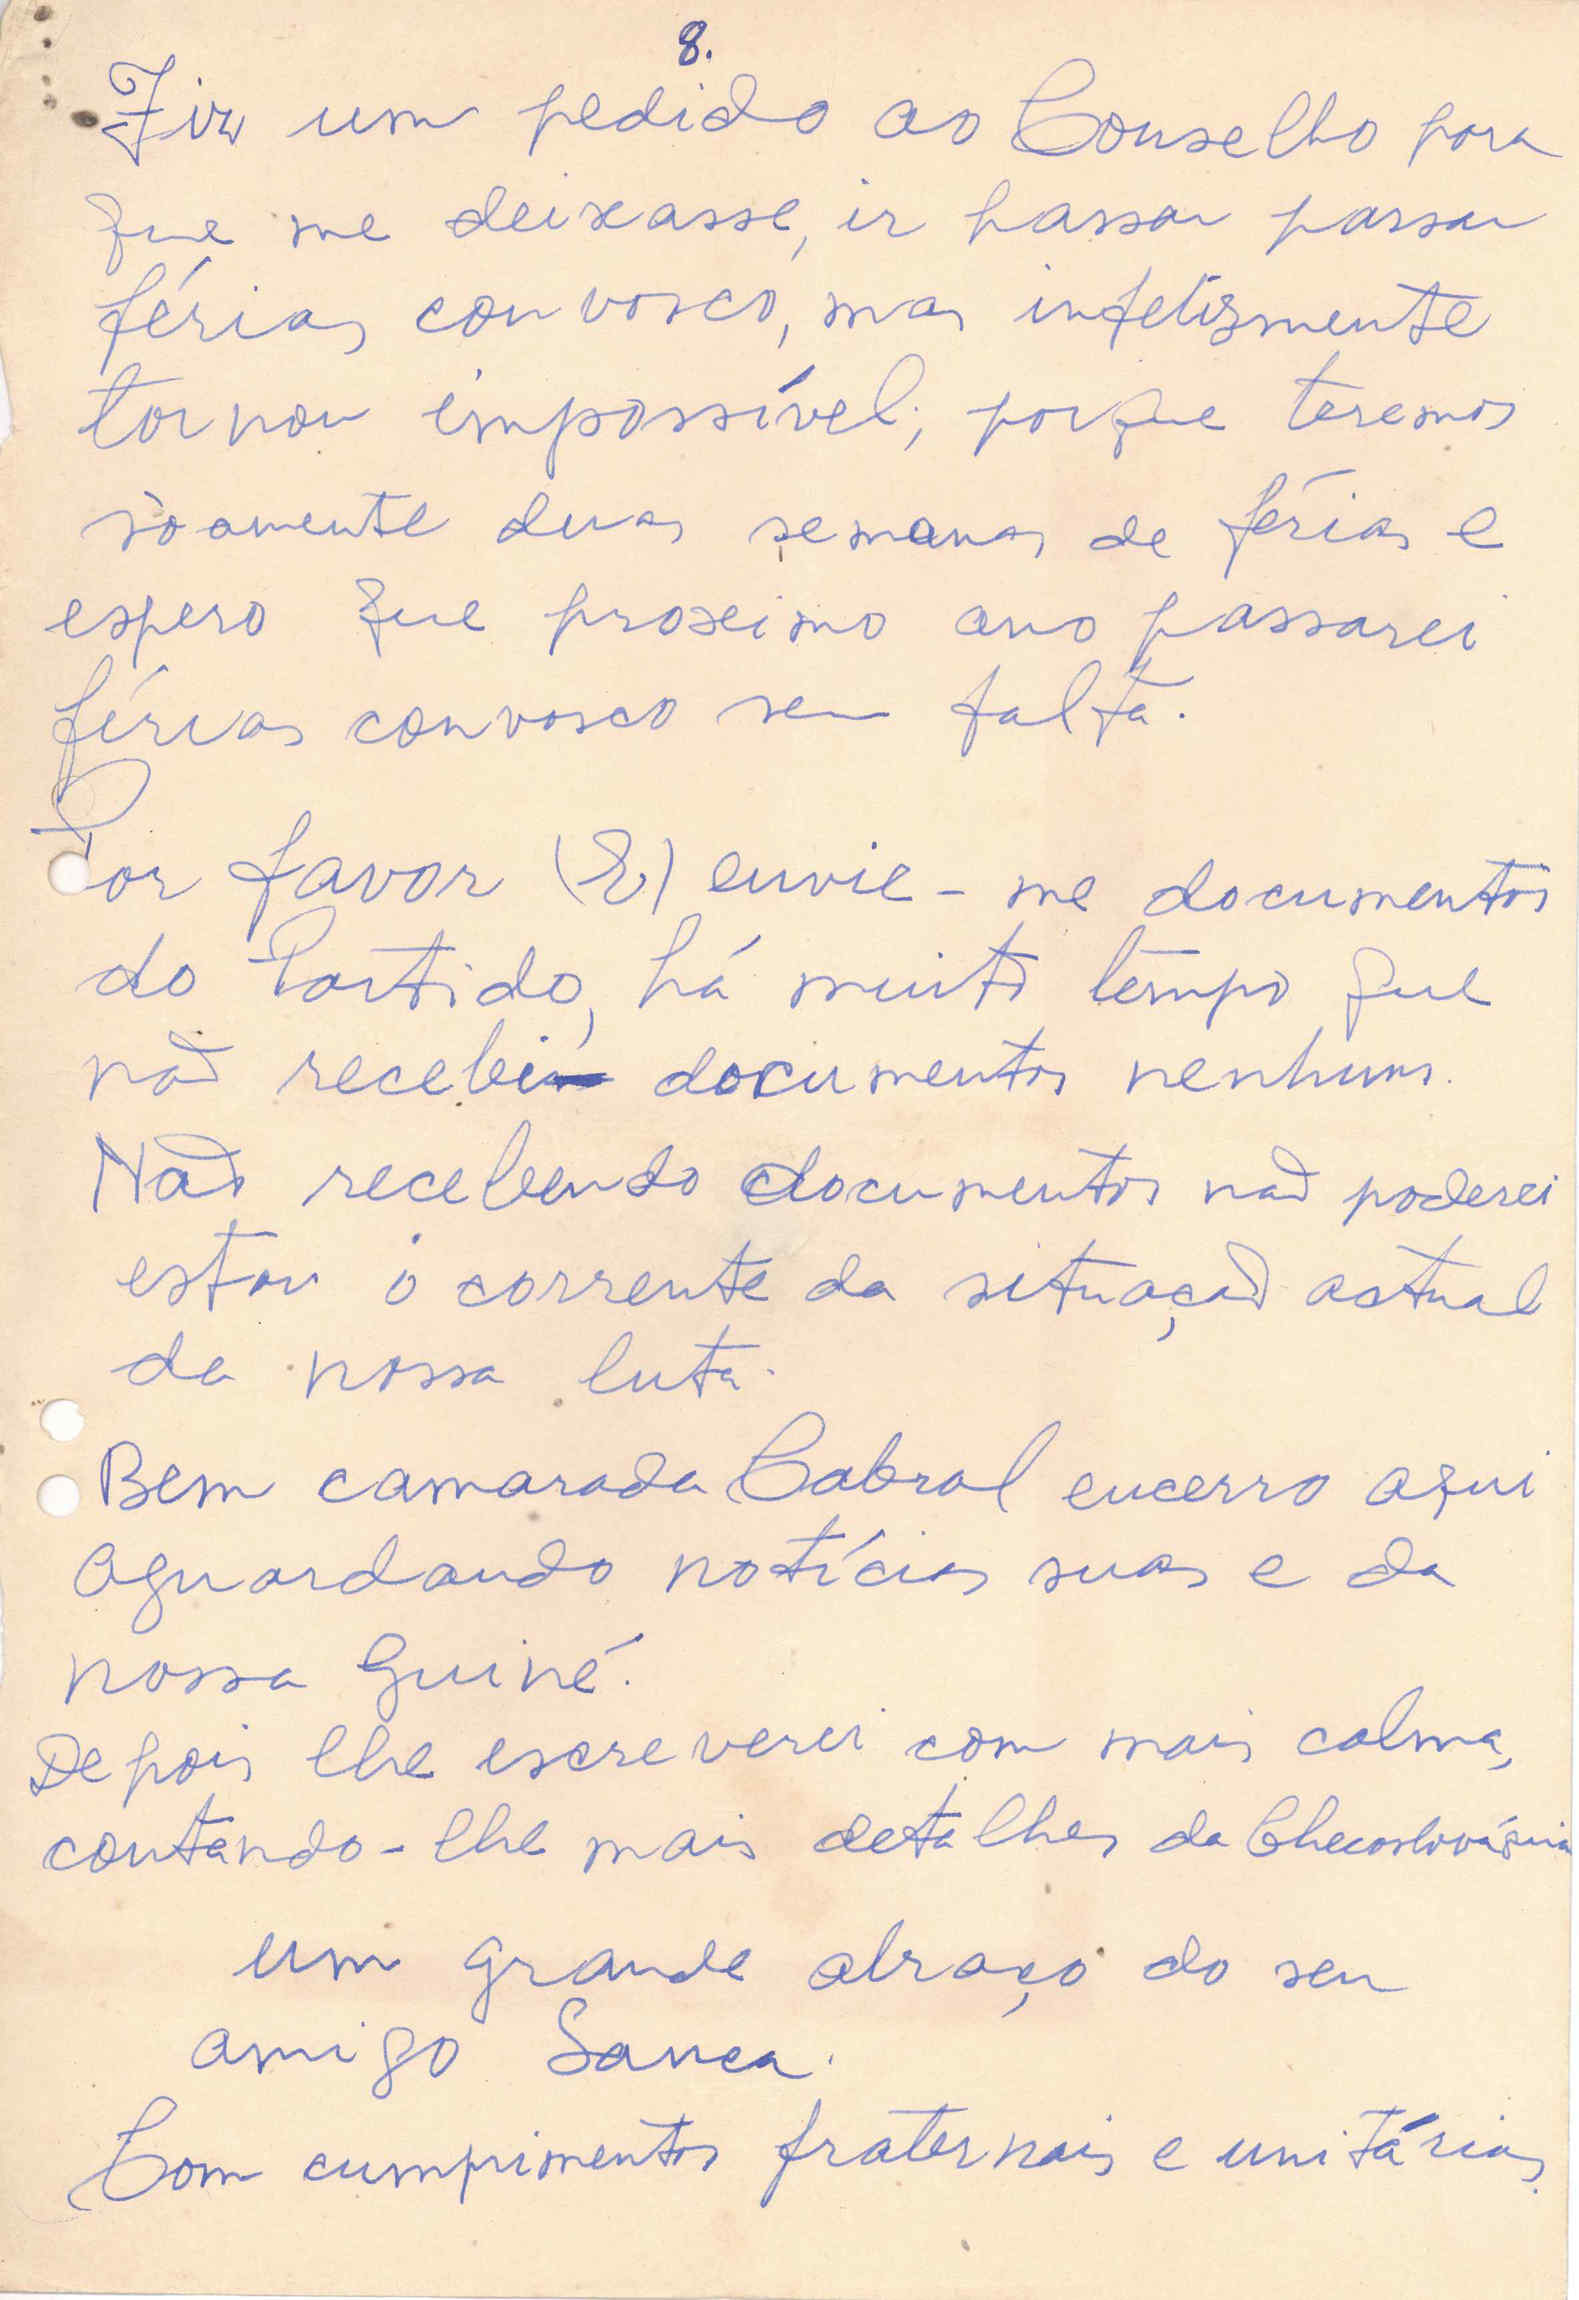 8.
Fiz um pedido ao Conselho para
que me deixasse, ir passar passar
férias convosco, mas infelizmente
tornou impossível; porque teremos
sòamente duas semanas de férias e
espero que proximo ano passarei
férias convosco sem falta.
Por favor (E) envie-me documentos
do Partido, há muito tempo que
não recebi documentos nenhuns.
Não recebendo documentos não poderei
estar ó corrente da situação actual
da nossa luta.
Bem camarada Cabral encerro aqui
aguardando notícias suas e da
nossa Guiné.
Depois lhe escreverei com mais calma,
contando-lhe mais detalhes da Checoslováquia
um grande abraço do seu
amigo Sanca.
Com cumprimentos fraternais e unitários.